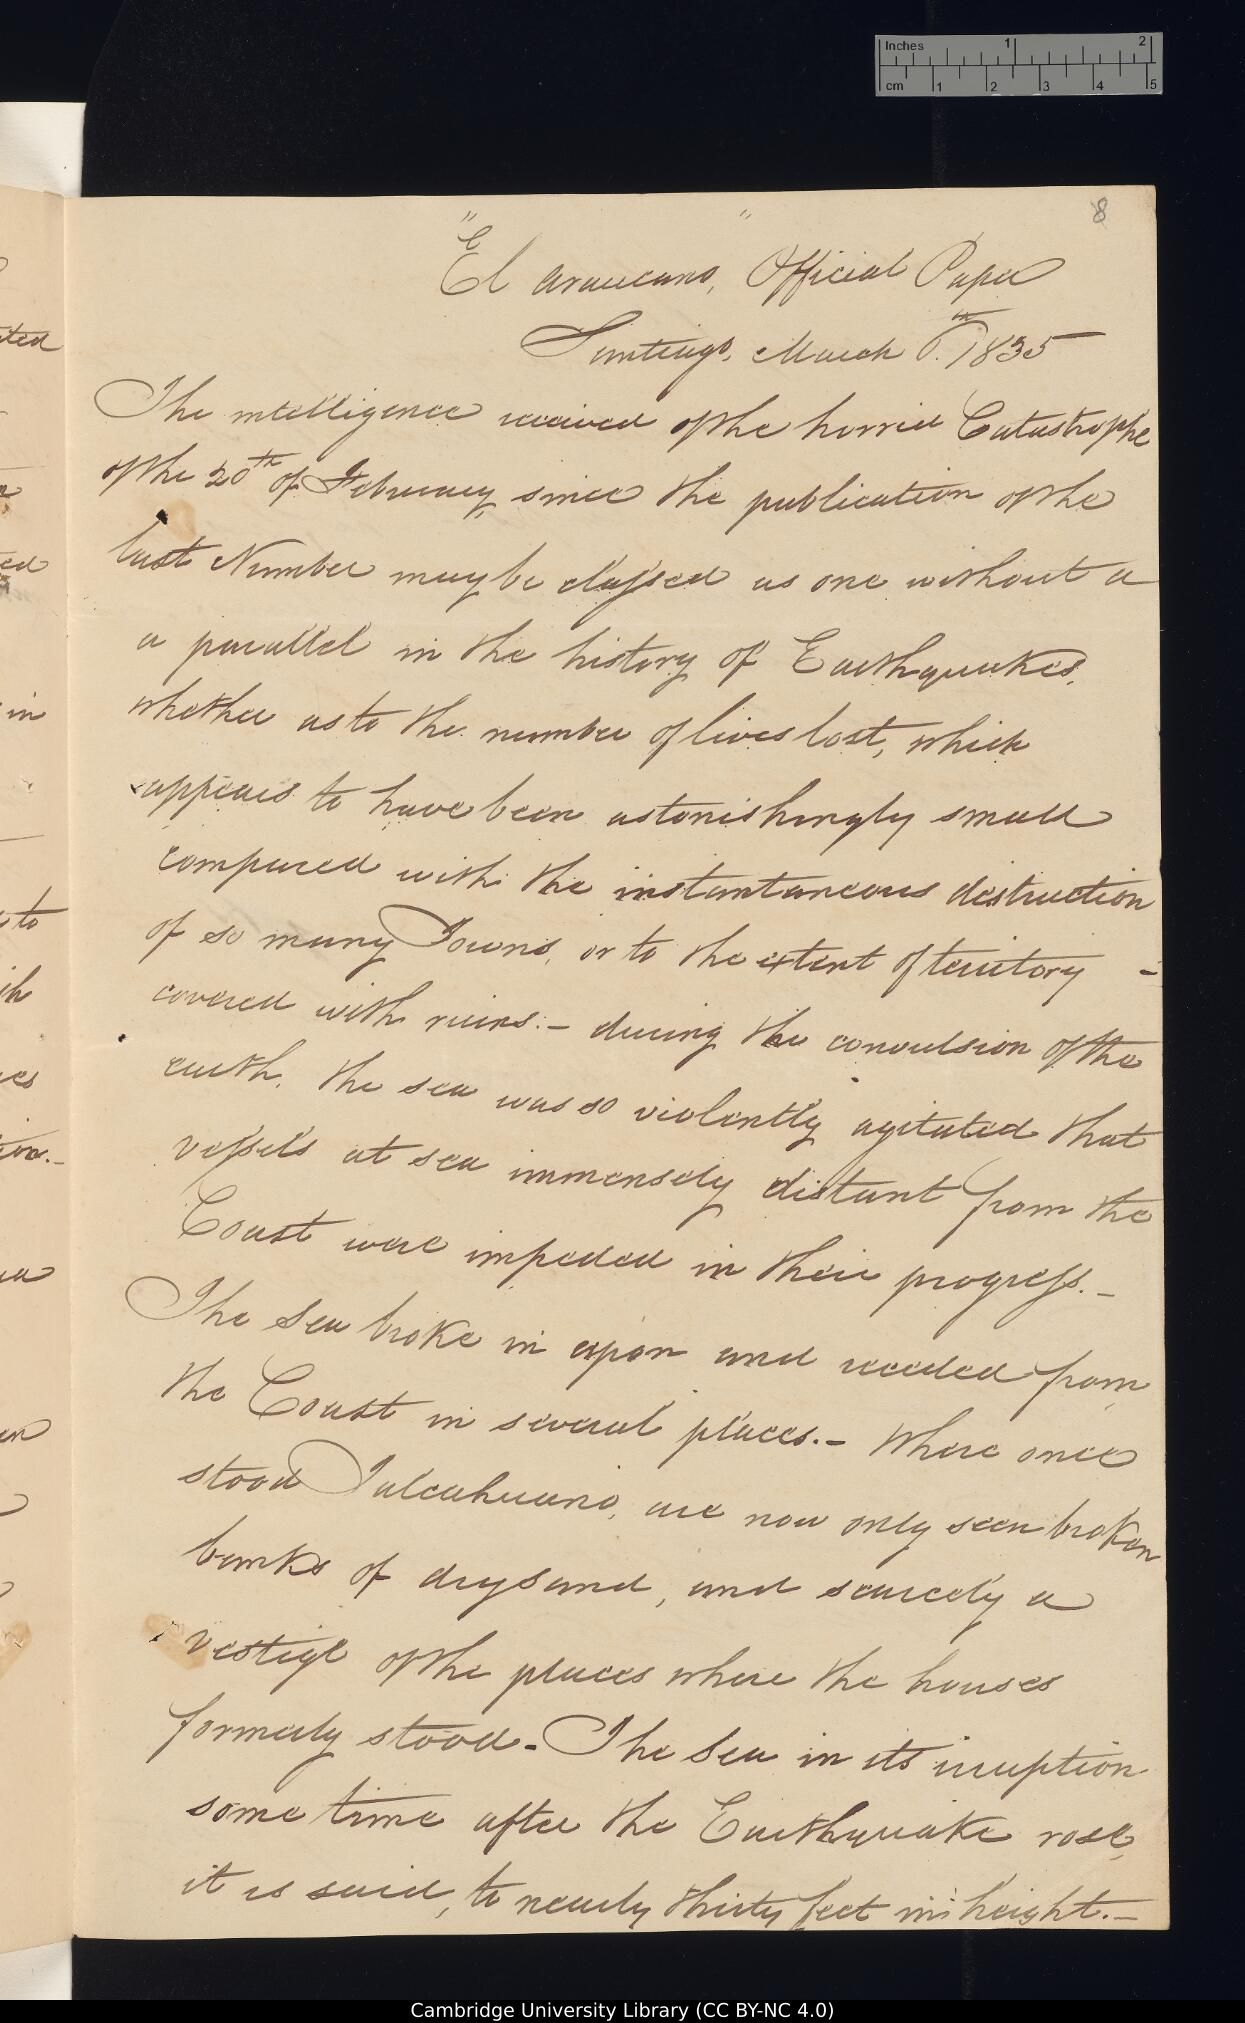 Inches 1 2
cm 1 2 3 4 5
8
"El Araucano," Official Paper
Santiago, March 6th. 1835
The intelligence received of the horrid Catastrophe
of the 20th of February, since the publication of the
last Number may be classed as one without a
a parallel in the history of Earthquakes,
whether as to the number of lives lost, which
appears to have been astonishingly small
compared with the instantaneous destruction
of so many Towns, or to the extent of territory -
covered with ruins. - during the convulsion of the
earth, the sea was so violently agitated that
vessels at sea immensely distant from the
Coast were impeded in their progress. -
The Sea broke in upon and receded from
the Coast in several places. - Where once
stood Talcahuano, are now only seen broken
banks of dry sand, and scarcely a
vestige of the places where the houses
formerly stood - The Sea in its irruption
some time after the Earthquake rose,
it is said, to nearly thirty feet in height. -
ted
ted
in
to
Cambridge University Library (CC BY-NC 4.0)